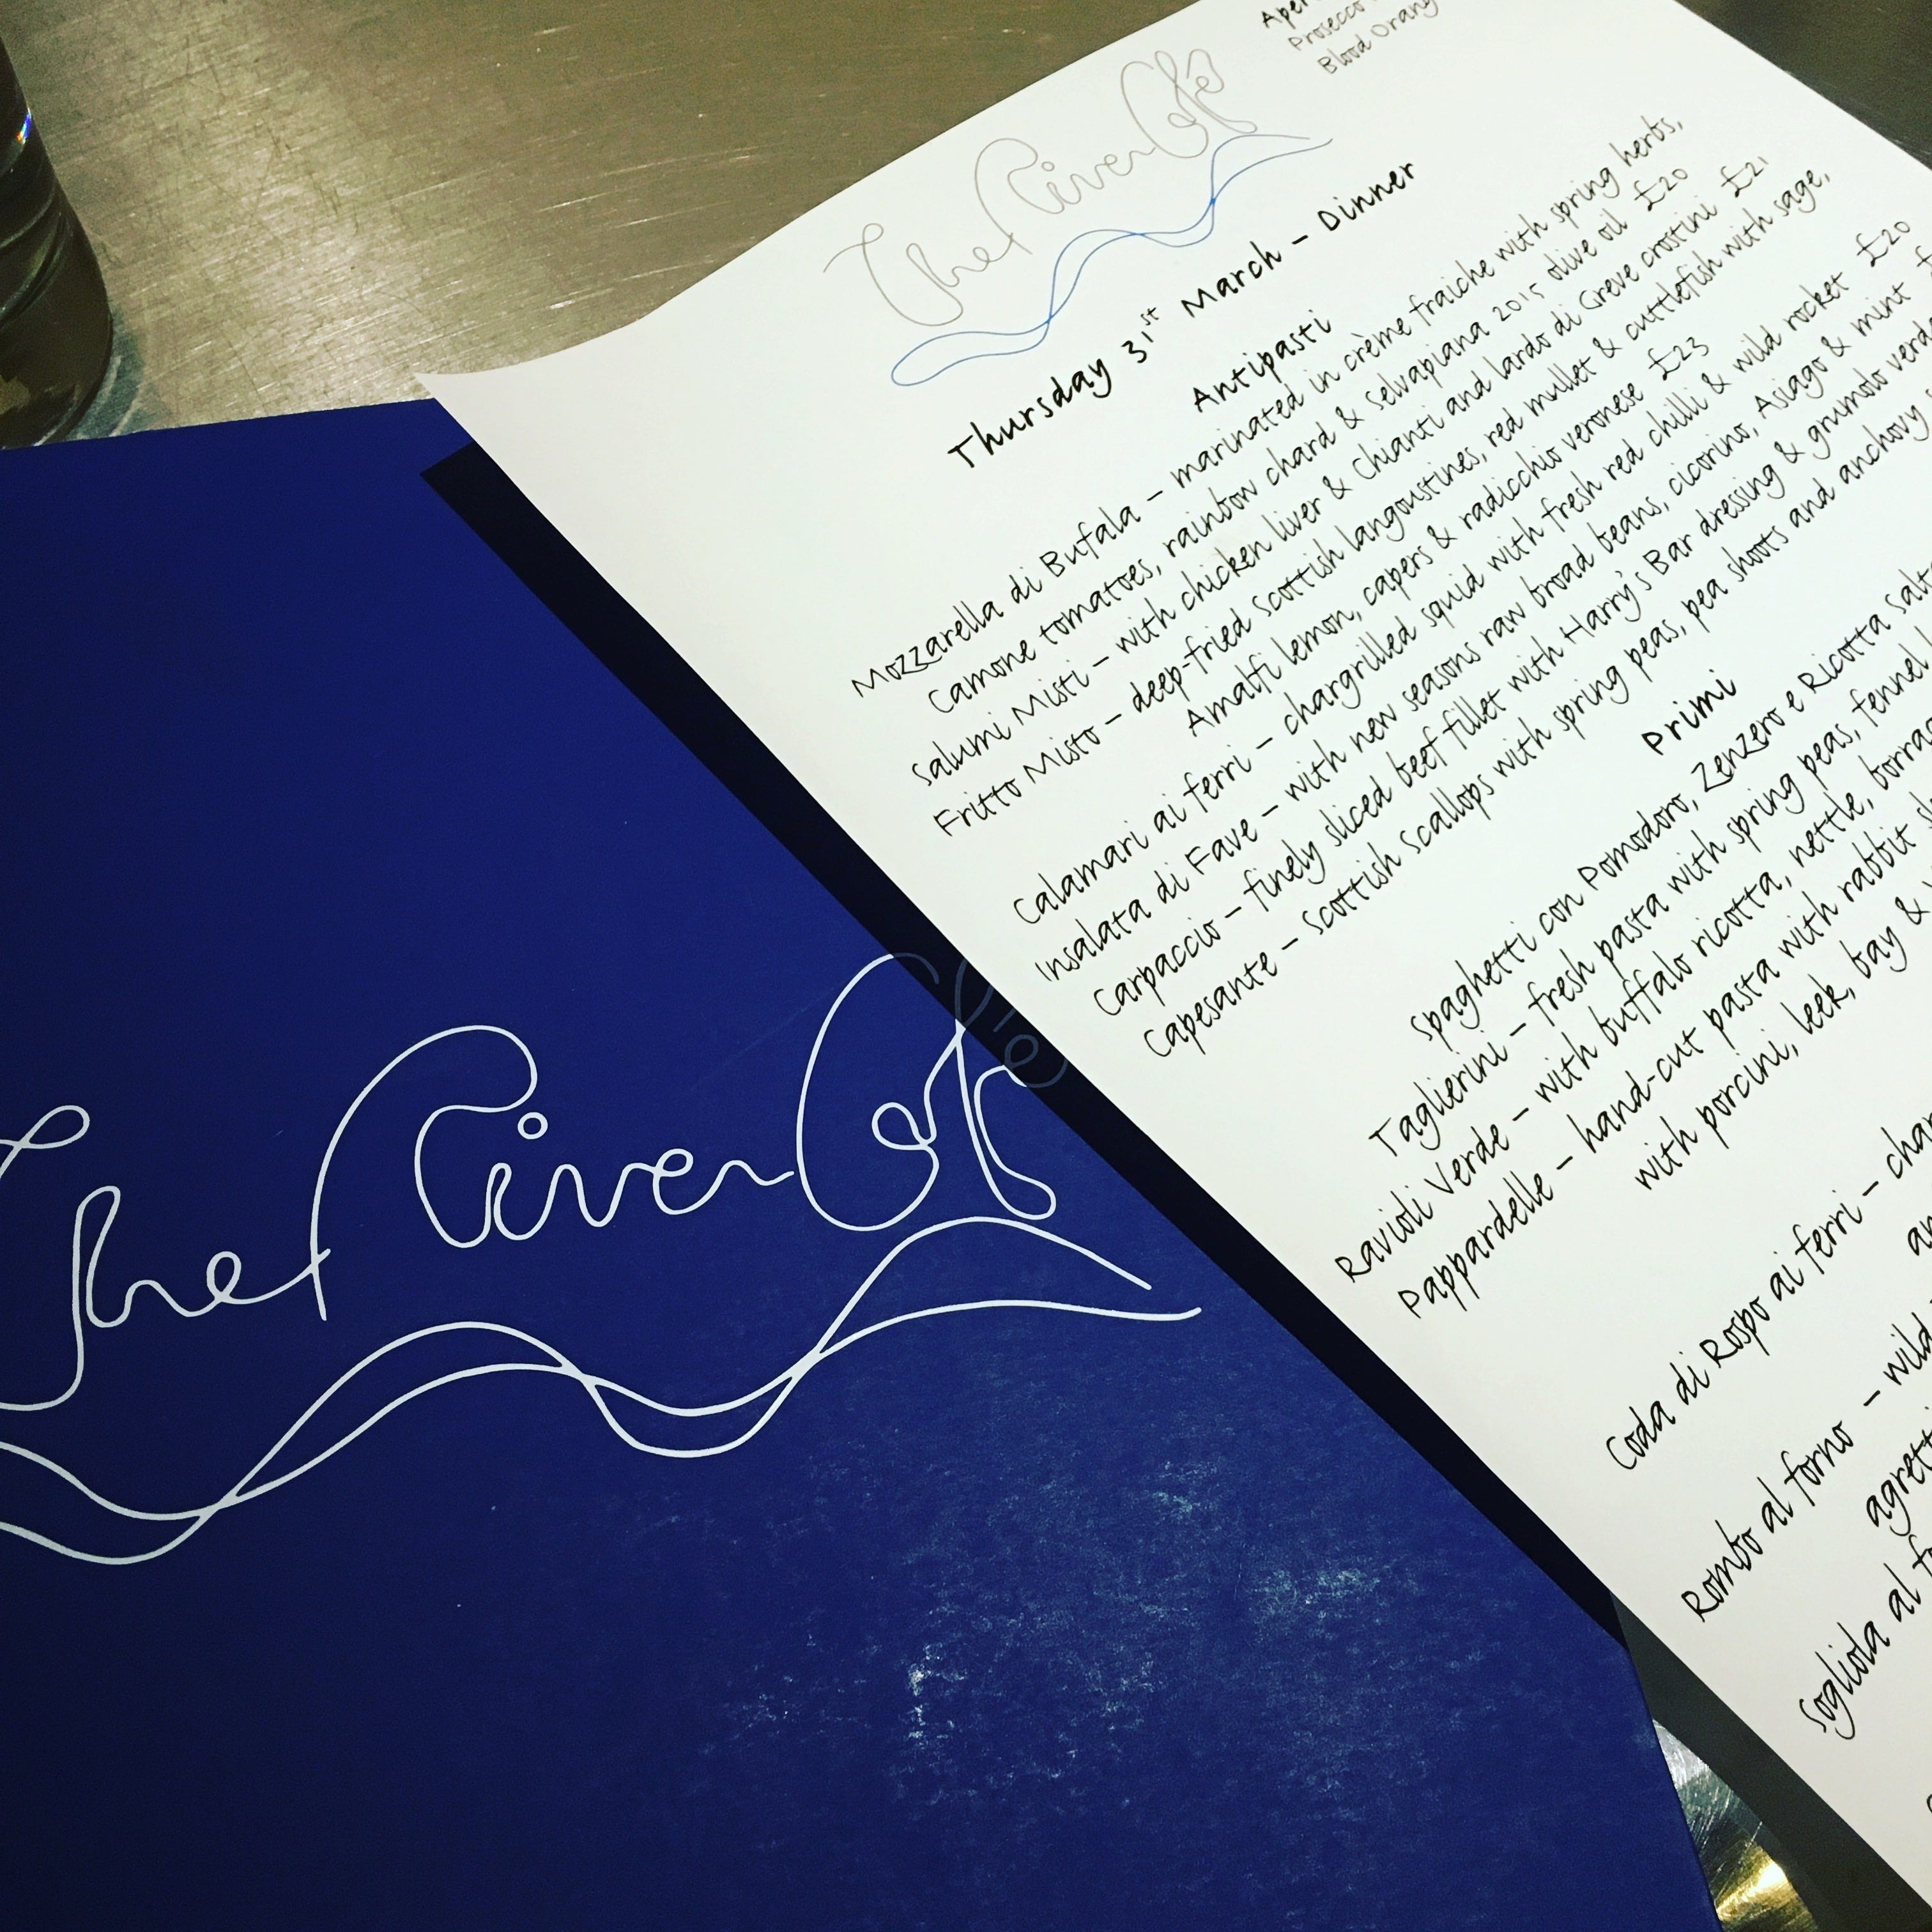 The River Café
Prosecco
Blood Orang
Thursday 31st March – Dinner
Antipasti
Mozzarella di Bufala – marinated in crème fraiche with spring herbs,
Camone tomatoes, rainbow chard & Selvapiana 2015 olive oil £20
Salumi Misti – with chicken liver & Chianti and lardo di Greve crostini £21
Fritto Misto – deep-fried Scottish langoustines, red mullet & cuttlefish with sage,
Amalfi lemon, capers & radicchio veronese £23
Calamari ai ferri – chargrilled squid with fresh red chilli & wild rocket £20
Insalata di Fave – with new seasons raw broad beans, cicorino, Asiago & mint £
Carpaccio – finely sliced beef fillet with Harry's Bar dressing & grumolo verd
Capesante – Scottish Scallops with spring peas, pea shoots and anchovy
Primi
Spaghetti con Pomodoro, Zenzero e Ricotta Salt
Taglierini – fresh pasta with spring peas, fennel
Ravioli Verde – with buffalo ricotta, nettle, borrag
Pappardelle – hand-cut pasta with rabbit
with porcini, leek, bay &
Coda di Rospo ai ferri – char
an
Rombo al forno – wild
agrett
Sogliola al f
The River Café